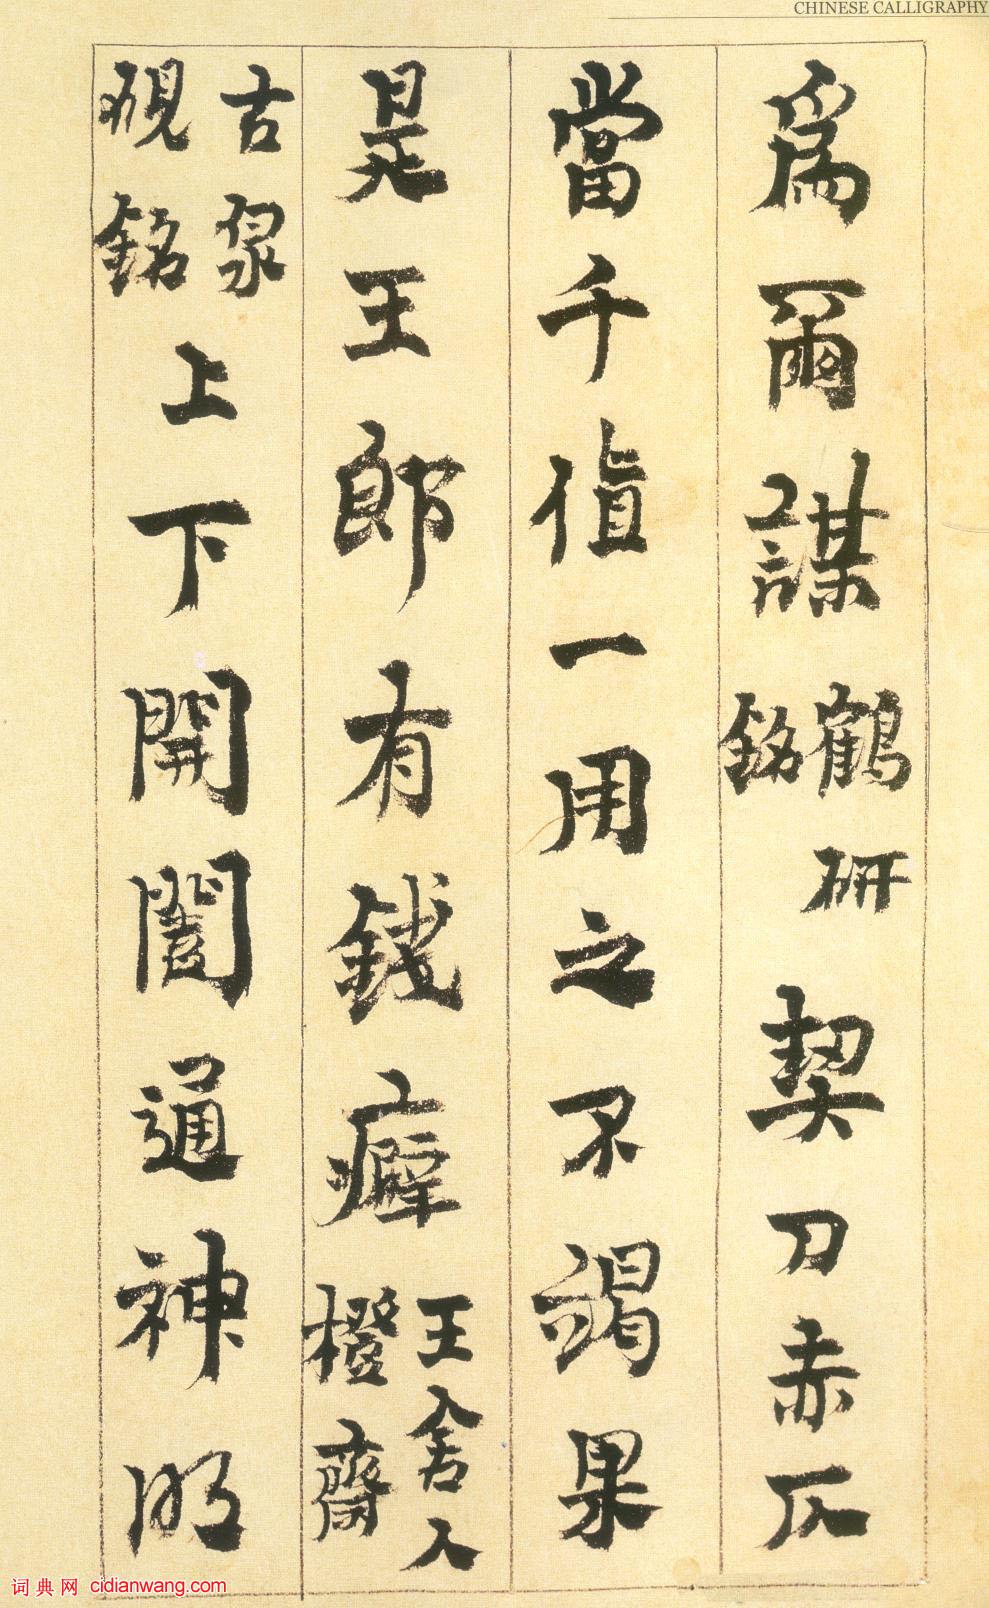 CHINESE CALLIGRAPHY
爲爾謀鶴研銘契刀赤仄
當千值一用之不竭果
是王郎有錢癖王舍人橙齋
古泉硯銘上下開闔通神明
词典网 cidianwang.com